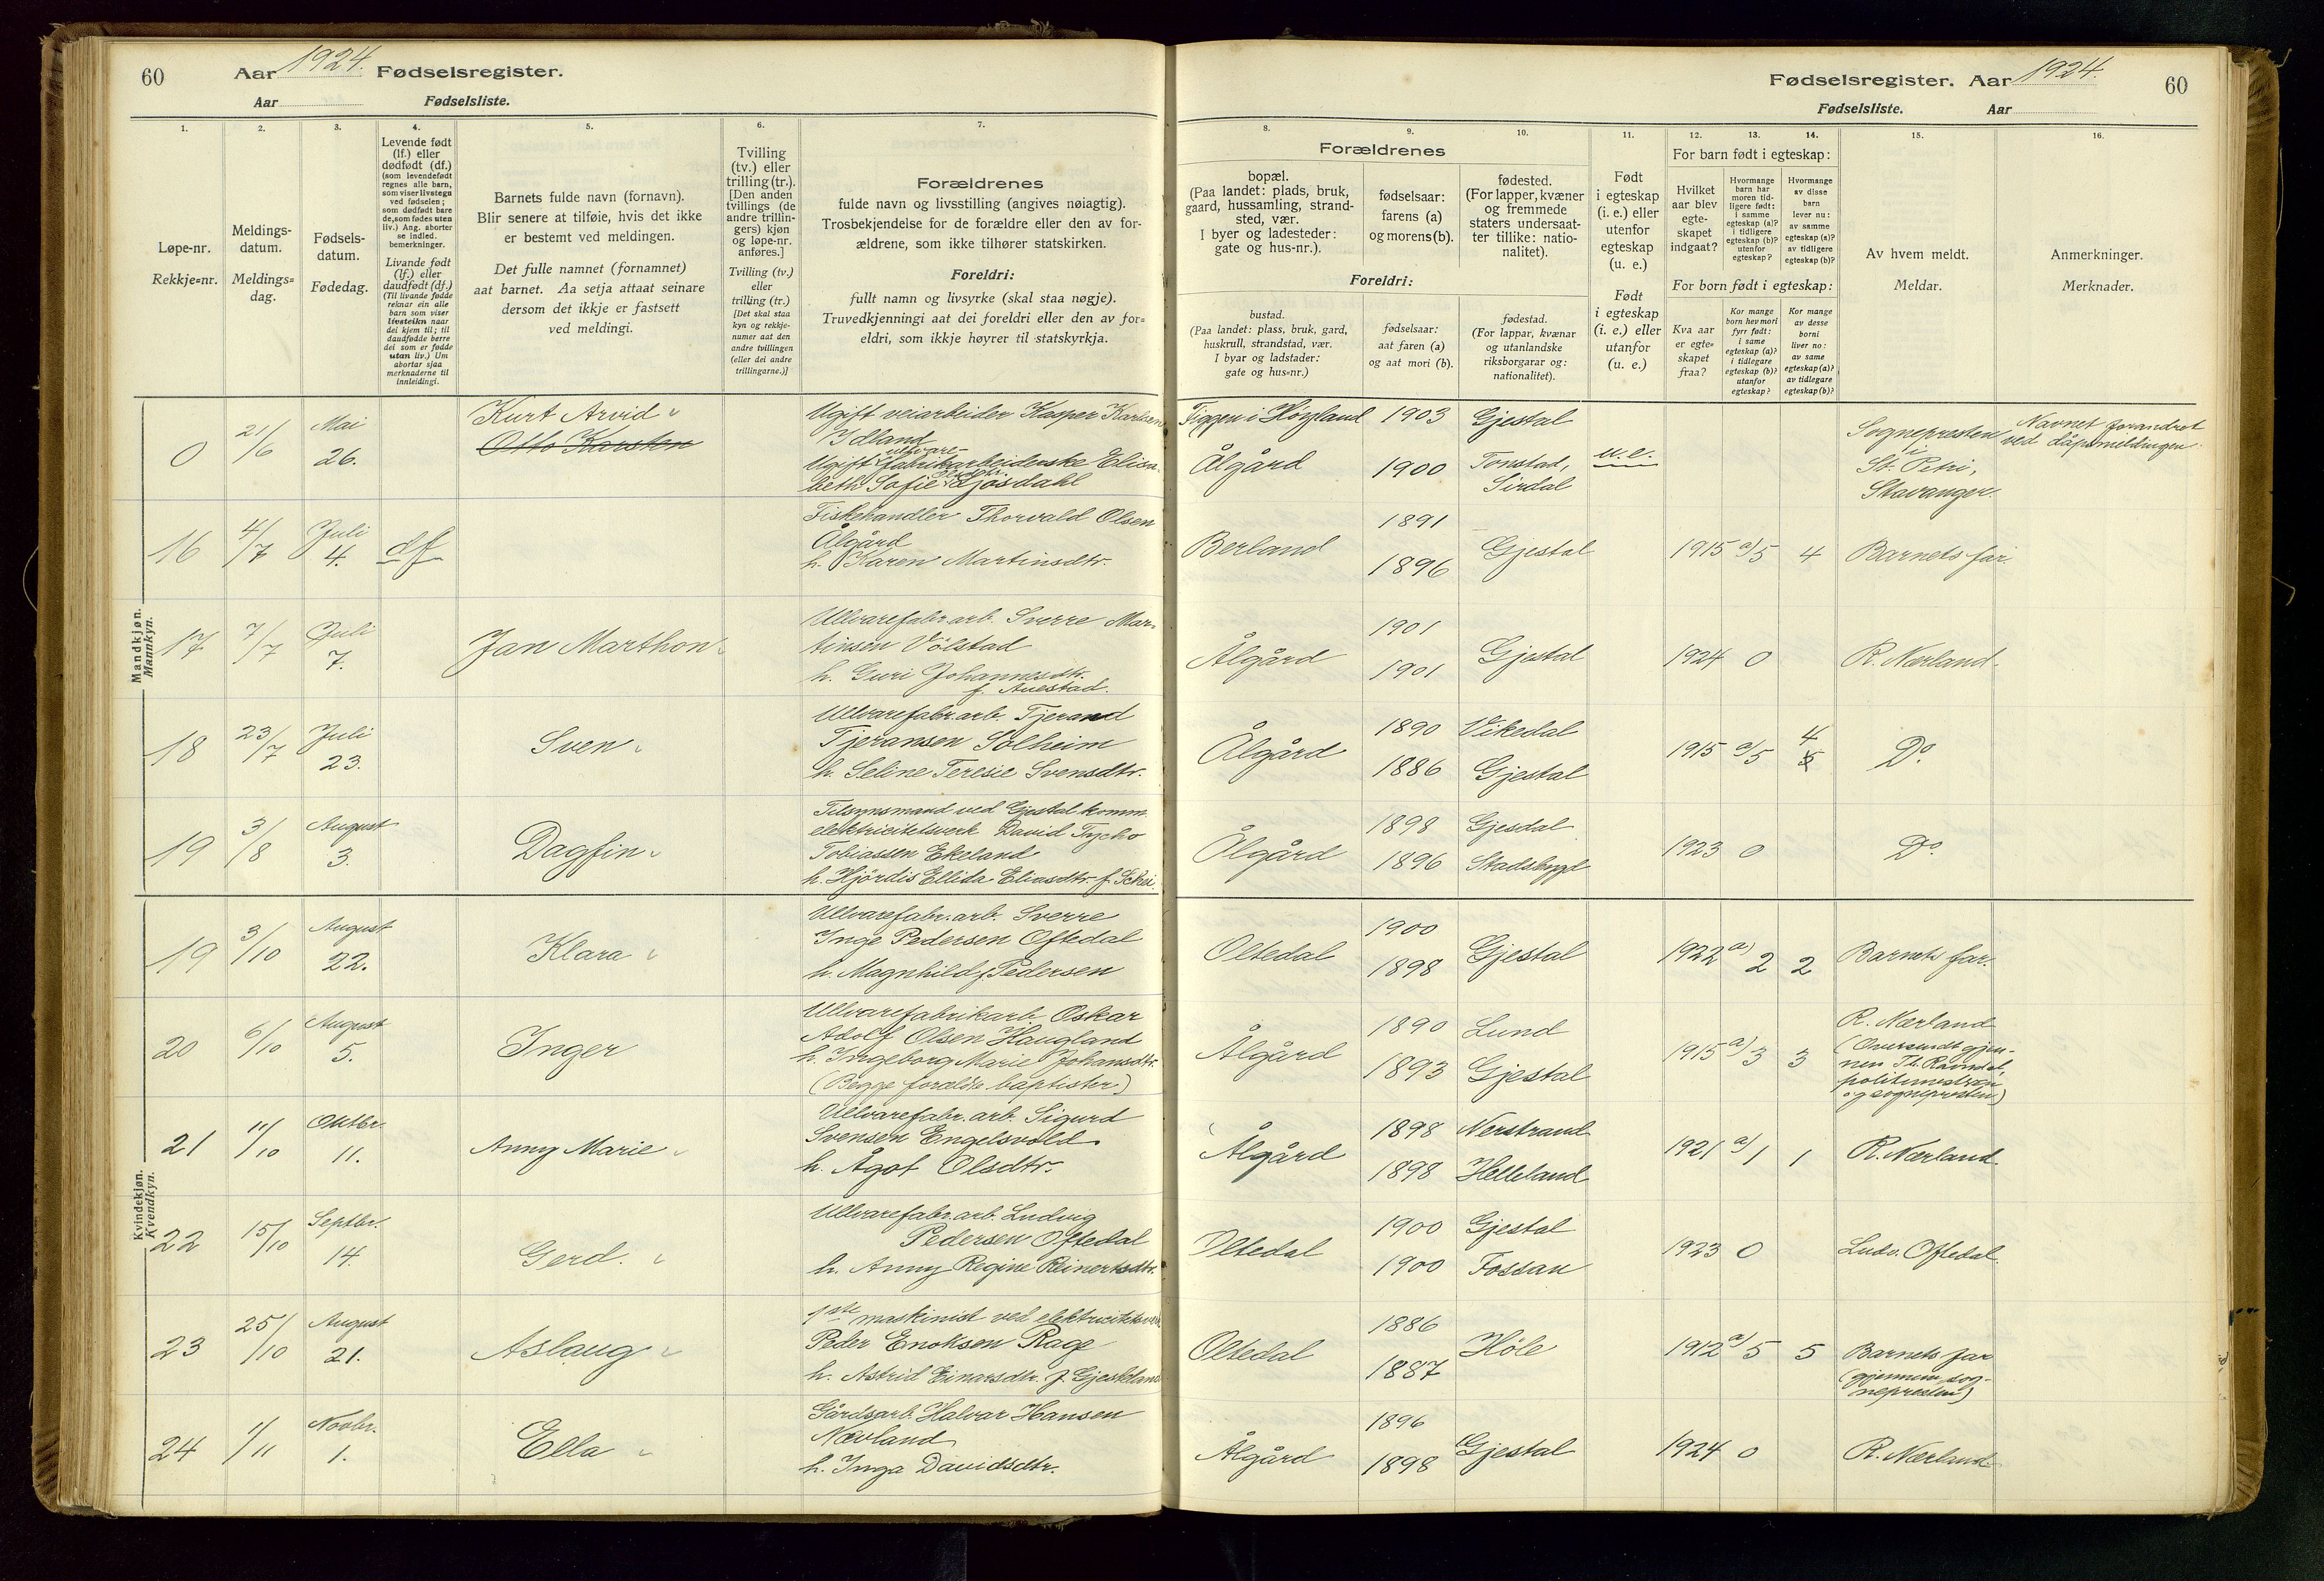 60
Aar 1924. Fødselsregister.
Aar Fødselsliste.
1.
2.
3.
4.
5.
6.
7.
Løpe-nr.
Rekkje=nr.
Meldings-
datum.
Meldings=
dag.
Fødsels-
datum.
Fødedag.
Levende født
(lf.) eller
dødfødt (df.)
(som levendefødt
regnes alle barn,
som viser livstegn
ved fødselen;
som dødfødt bare
de, som fødes uten
liv.) Ang. aborter
se indled.
bemerkninger.
Livande født
(lf.) eller
daudfødt (df.)
(Til livande fødde
reknar ein alle
barn som viser
livsteikn naar
dei kjem til; til
daudfødde berre
dei som er fødde
utan liv.) Um
abortar sjaa
merknaderne til
innleidingi.
Barnets fulde navn (fornavn).
Blir senere at tilføie, hvis det ikke
er bestemt ved meldingen.
Det fulle namnet (fornamnet)
aat barnet. Aa setja attaat seinare
dersom det ikkje er fastsett
ved meldingi.
Tvilling
(tv.) eller
trilling (tr.).
[Den anden
tvillings (de
andre trillin-
gers) kjøn
og løpe-nr.
anføres.]
Tvilling (tv.)
eller
trilling (tr.)
[Det skal staa
kyn og rekkje-
numer aat den
andre tvillingen
(eller dei andre
trillingarne.)]
Forældrenes
fulde navn og livsstilling (angives nøiagtig).
Trosbekjendelse for de forældre eller den av for-
ældrene, som ikke tilhører statskirken.
Foreldri:
fullt namn og livsyrke (skal staa nøgje).
Truvedkjenningi aat dei foreldri eller den av for=
eldri, som ikkje høyrer til statskyrkja.
Mandkjøn.
Mannkyn.
0
21/6
Mai
26.
Kurt Arvid
Otto Karsten
Ugift veiarbeider Kasper Karlsen
Idland
Ugift ullvare-
fabrikarbeiderske Elisa-
beth Sofie Josdahl
16
4/7
Juli
4.
df
Fiskehandler Thorvald Olsen
Ålgård
h. Karen Martinsdtr.
17
7/7
Juli
7.
Jan Marthon
Ullvarefabr.arb. Sverre Mar-
tinsen Vølstad
h. Guri Johannesdtr.
f. Auestad.
18
23/7
Juli
23.
Sven
Ullvarefabr.arb. Tjerand
Tjeransen Solheim
h. Seline Teresie Svensdtr.
19
3/8
August
3.
Dagfin
Tilsynsmand ved Gjestal komm.
elektricitetsverk David Tycho
Tobiassen Ekeland
h. Hjördis Ellida Eliasdtr. f. Schei.
Kvindekjøn.
Kvendkyn.
19
3/10
August
22.
Klara
Ullvarefabr.arb. Sverre
Inge Pedersen Oftedal
h. Magnhild f. Pedersen
20
6/10
August
5.
Inger
Ullvarefabrikarb. Oskar
Adolf Olsen Haugland
h. Ingeborg Marie Johansdtr.
(Begge forældre baptister)
21
11/10
Oktbr.
11.
Anny Marie
Ullvarefabr.arb. Sigurd
Svensen Engelsvold
h. Ågot Olsdtr.
22
15/10
Septbr.
14.
Gerd.
Ullvarefabr.arb. Ludvig
Pedersen Oftedal
h. Anny Regine Reinertsdtr.
23
25/10
August
21.
Aslaug
1ste maskinist ved elektricitetsverk
Peder Enoksen Rage
h. Astrid Einarsdtr. f. Gjesteland
24
1/11
Novbr.
1.
Ella
Gårdsarb. Halvar Hansen
Nævland
h. Inga Davidsdtr.
Fødselsregister. Aar 1924.
60
Fødselsliste. Aar
8.
9.
10.
11.
12.
13.
14.
15.
16.
Forældrenes
bopæl.
(Paa landet: plads, bruk,
gaard, hussamling, strand-
sted, vær.
I byer og ladesteder:
gate og hus-nr.).
fødselsaar:
farens (a)
og morens (b).
fødested.
(For lapper, kvæner
og fremmede
staters undersaat-
ter tillike: natio-
nalitet).
Foreldri:
bustad.
(Paa landet: plass, bruk, gard,
huskrull, strandstad, vær.
I byar og ladstader:
gate og hus=nr.)
fødselsaar:
aat faren (a)
og aat mori (b).
fødestad.
(For lappar, kvænar
og utanlandske
riksborgarar og:
nationalitet).
Født
i egteskap
(i. e.) eller
utenfor
egteskap
(u. e.)
Født
i egteskap
(i. e.) eller
utanfor
(u. e.)
For barn født i egteskap:
Hvilket
aar blev
egte-
skapet
indgaat?
Hvormange
barn har
moren tid-
ligere født:
i samme
egteskap (a)?
i tidligere
egteskap (b)?
utenfor
egteskap?
Hvormange
av disse
barn
lever nu:
av samme
egteskap (a)?
av tidligere
egteskap (b)?
For born født i egteskap:
Kva aar
er egte=
skapet
fraa?
Kor mange
born hev mori
fyrr født:
i same
egteskap (a)?
i tidlegare
egteskap (b)?
utanfor
egteskap?
Kor mange
av desse
borni
liver no:
av same
egteskap (a)?
av tidlegare
egteskap (b)?
Av hvem meldt.
Meldar.
Anmerkninger.
Merknader.
Figgen i Høgland
Ålgård
1903
1900
Gjestal
Tonstad,
Sirdal
u.e.
Sognepresten
i
St. Petri,
Stavanger.
Navnet forandret
ved dåpsmeldingen.
Berland
1891
1896
Gjestal
1915
a) 5
4
Barnets far.
Ålgård
1901
1901
Gjestal
1924
0
R. Nærland.
Ålgård
1890
1886
Vikedal
Gjestal
1915
a) 5
4
5
Do.
Ålgård
1898
1896
Gjesdal
Stadsbygd
1923
0
Do.
Oltedal
1900
1898
Gjestal
1922
a) 2
2
Barnets far.
Ålgård
1890
1893
Lund
Gjestal
1915
a) 3
3
R. Nærland
(Oversendt gjen-
nem Th. Ravndal,
politimestren
og sognepresten)
Ålgård
1898
1898
Nerstrand
Helleland
1921
a) 1
1
R. Nærland.
Oltedal
1900
1900
Gjestal
Fossan
1923
0
Ludv. Oftedal.
Oltedal
1886
1887
Høle
1912
a) 5
5
Barnets far
(gjennem sog-
nepresten)
Ålgård
1896
1898
Gjestal
1924
0
R. Nærland